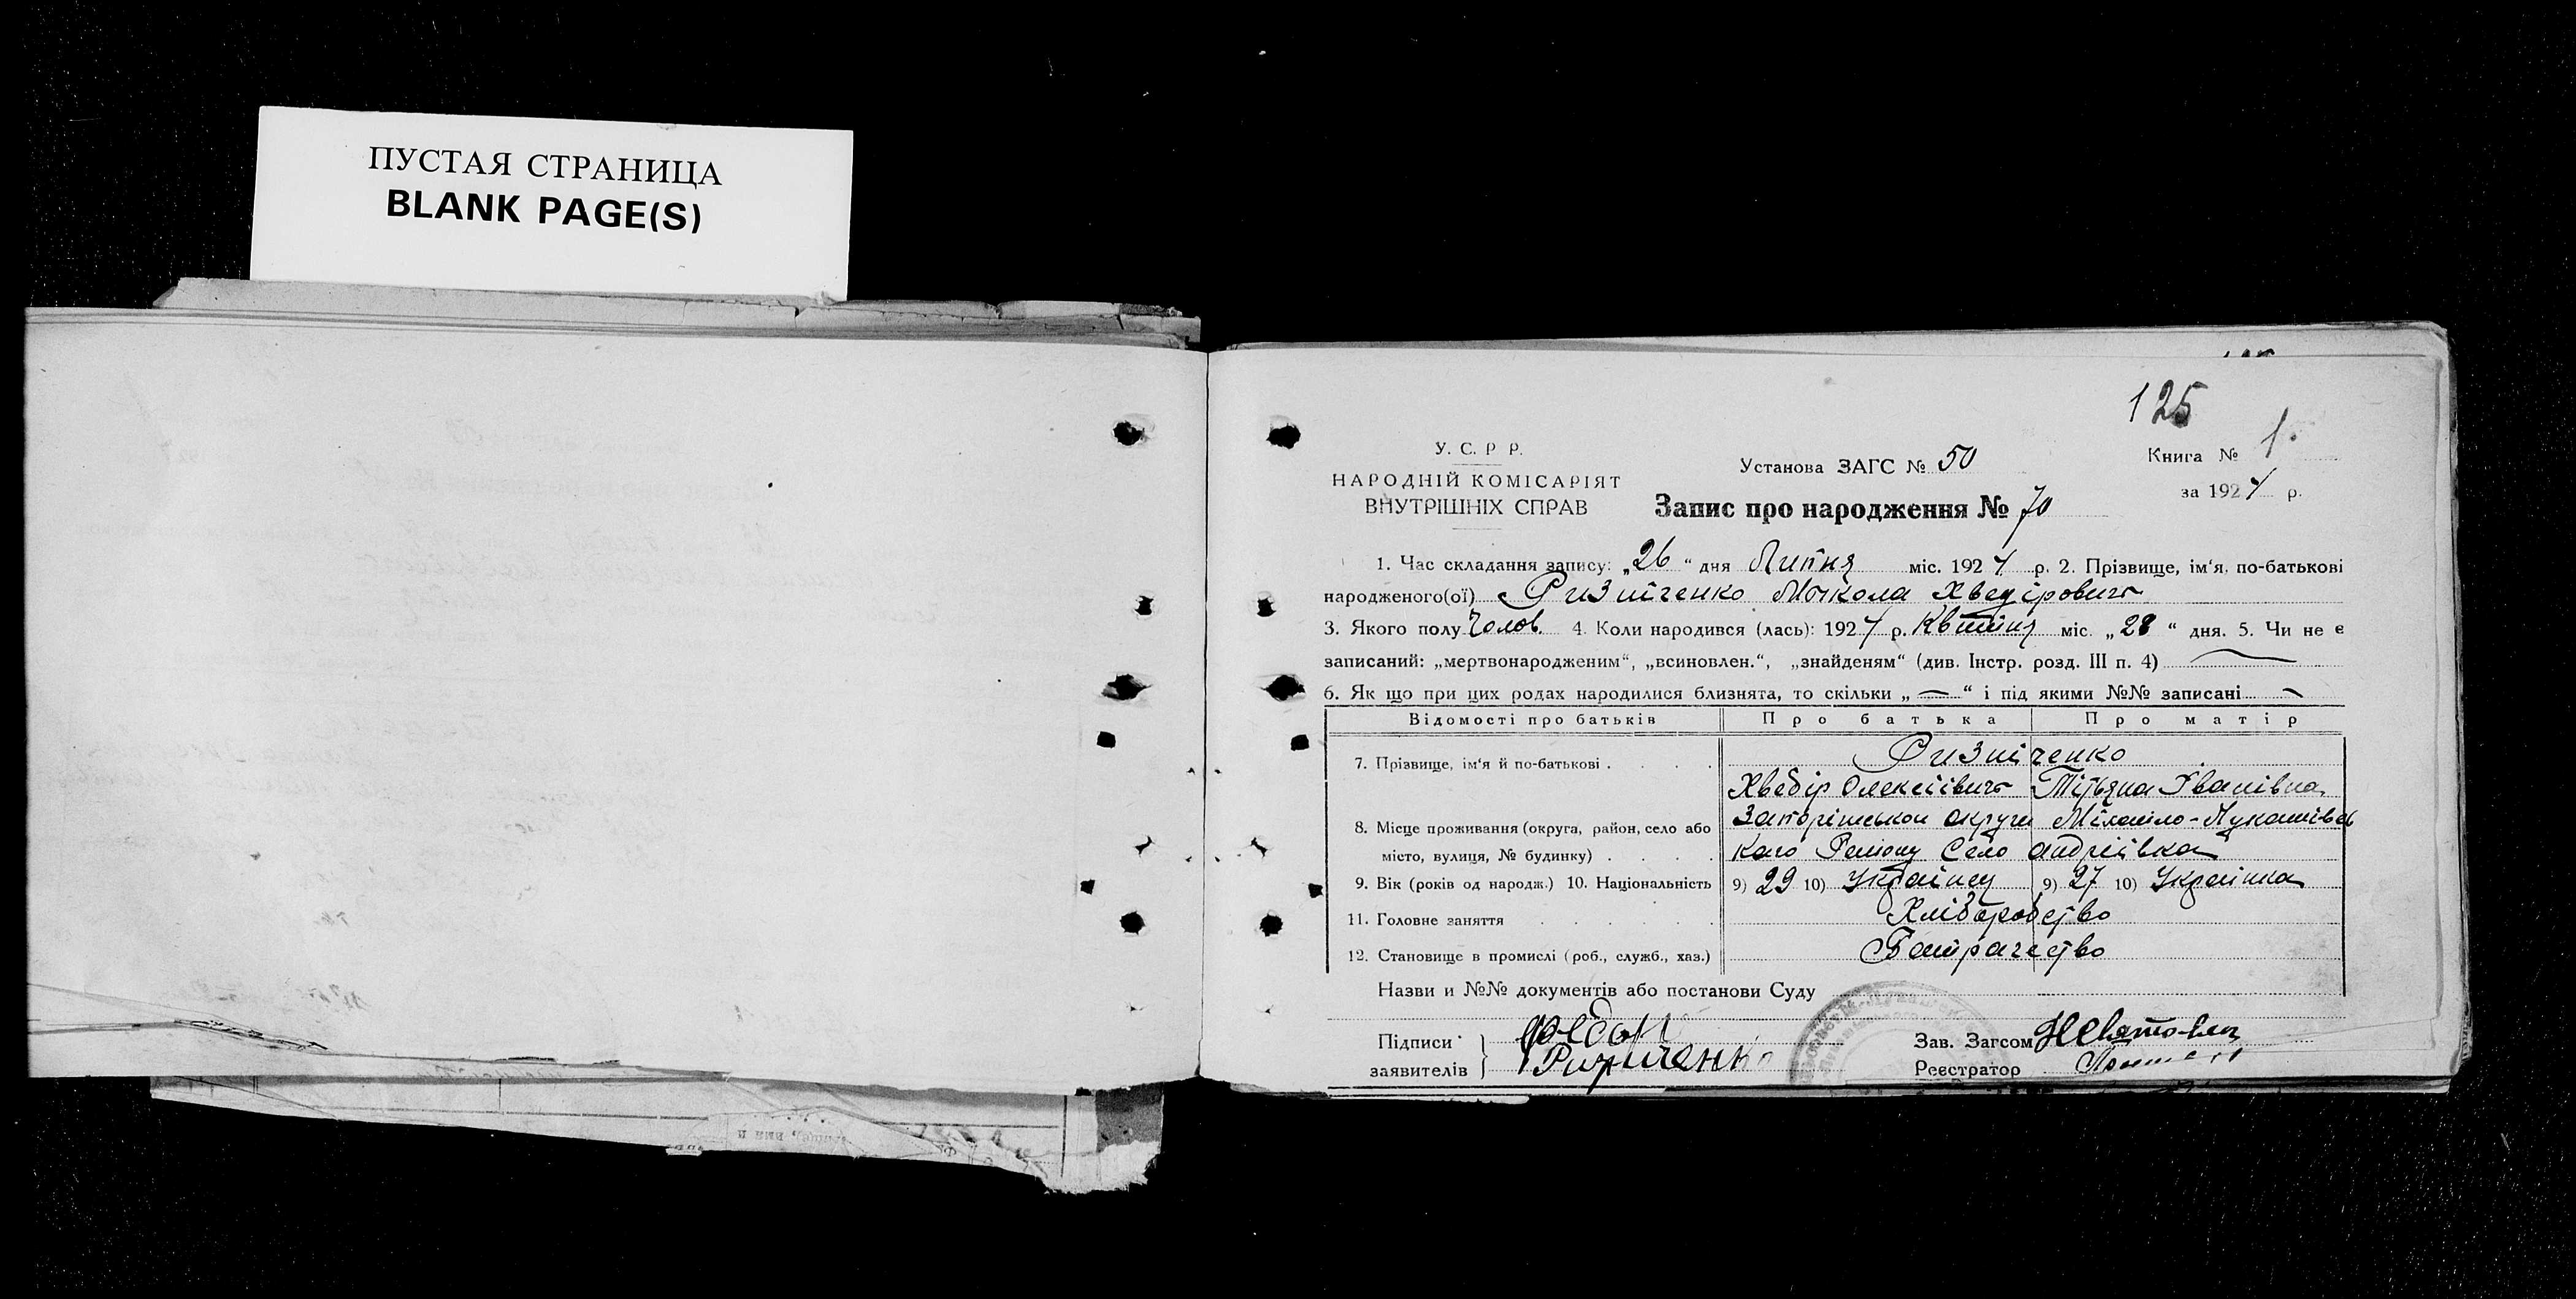 ПУСТАЯ СТРАНИЦА
BLANK PAGE(S)
125
У. С. Р Р.
НАРОДНІЙ КОМІСАРІЯТ
ВНУТРІШНІХ СПРАВ
Установа ЗАГС № 50
Книга № 1.
за 1924 р.
Запис про народження № 70
1. Час складання запису: „26“ дня Липня міс. 1924 р. 2. Прізвище, ім'я, по-батькові
народженого(ої) Ризніченко Микола Хведірович
3. Якого полу Чолов. 4. Коли народився (лась): 1924 р. Квітня міс. „28“ дня. 5. Чи не є
записаний: „мертвонародженим“, „всиновлен.“, „знайденям“ (див. Інстр. розд. III п. 4)
6. Як що при цих родах народилися близнята, то скільки „—“ і під якими №№ записані
Відомості про батьків Про батька Про матір
7. Прізвище, ім'я й по-батькові . . . . Ризніченко
Хведір Олексіївич Тітьяна Іванівна
8. Місце проживання (округа, район, село або Запорішськои округи Міхайло-Лукашівсь
місто, вулиця, № будинку) . . . . кого Району Село Андріівка
9. Вік (років од народж.) 10. Національність 9) 29 10) Українец 9) 27 10) Українка
11. Головне заняття . . . . Хлібороб
12. Становище в промислі (роб., служб., хаз.) Батрачество
Назви и №№ документів або постанови Суду
Підписи Федор
заявителів Ризниченко
Зав. Загсом
Реєстратор